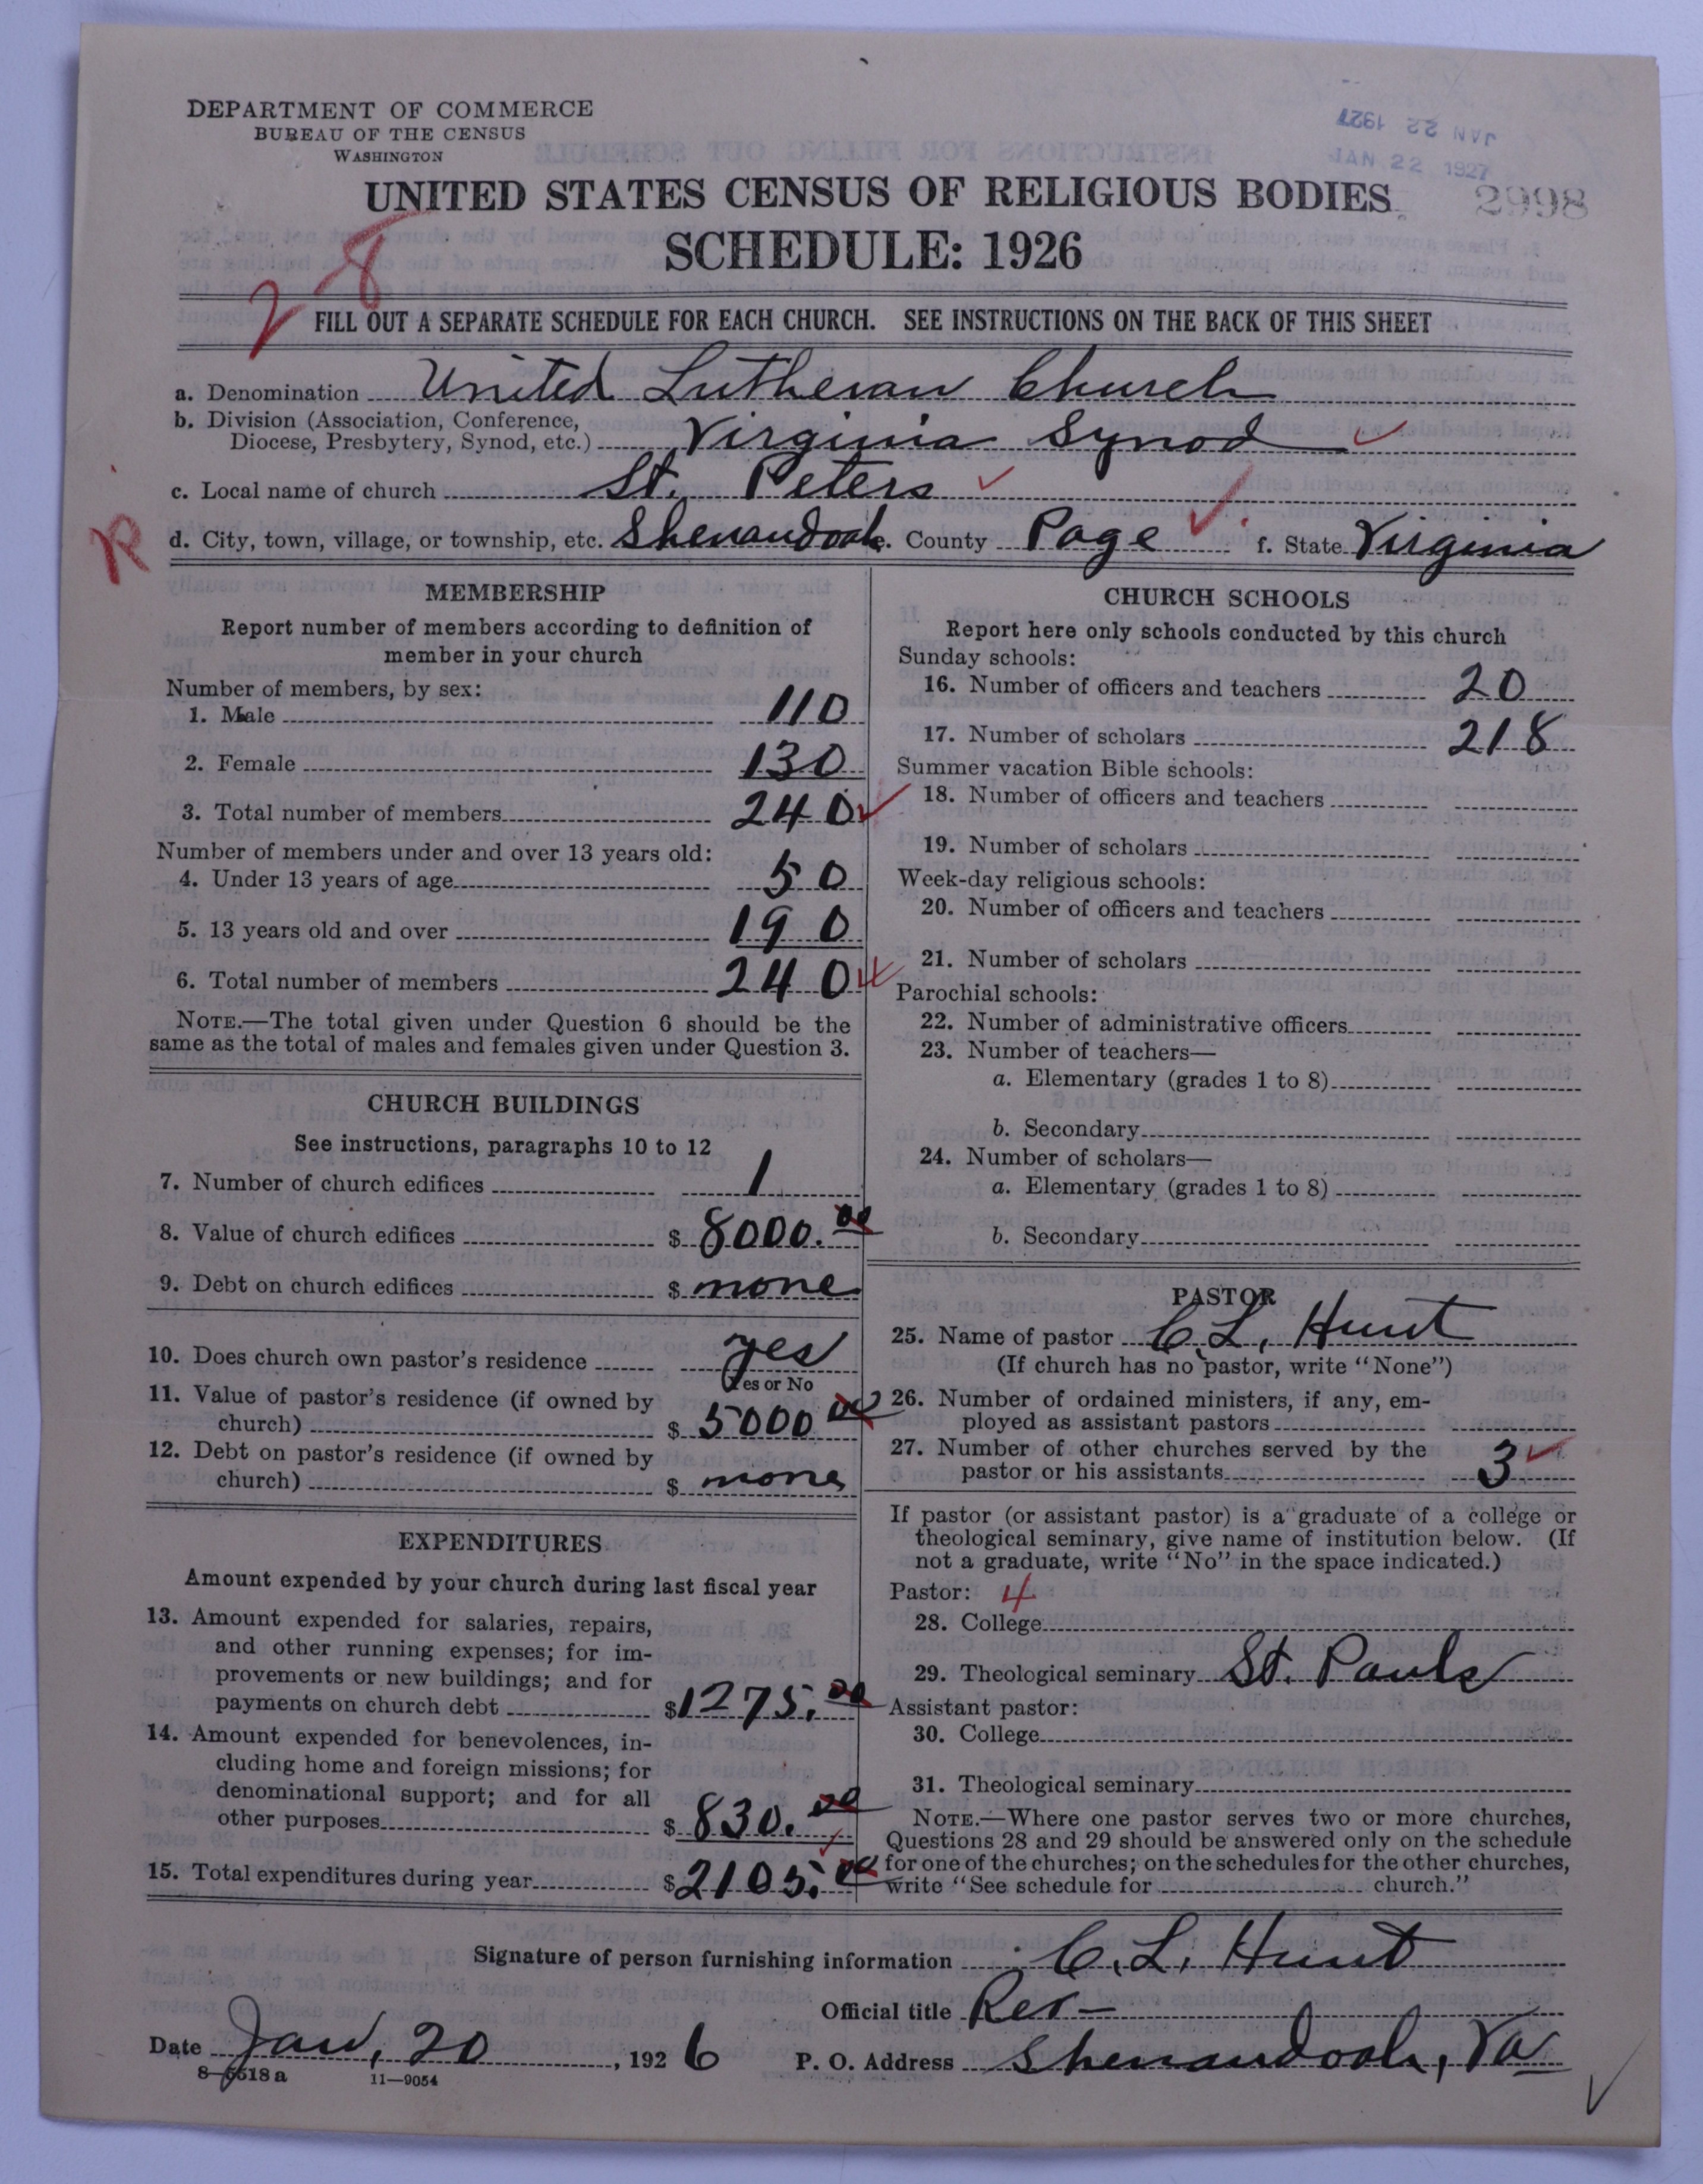 DEPARTMENT OF COMMERCE
BUREAU OF THE CENSUS
WASHINGTON
JAN 22 1927
JAN 22 1927
2998
UNITED STATES CENSUS OF RELIGIOUS BODIES
SCHEDULE: 1926
28
FILL OUT A SEPARATE SCHEDULE FOR EACH CHURCH. SEE INSTRUCTIONS ON THE BACK OF THIS SHEET
a. Denomination United Lutheran Church
b. Division (Association, Conference,
Diocese, Presbytery, Synod, etc.) Virginia Synod
c. Local name of church St. Peters
R
d. City, town, village, or township, etc. Shenandoah e. County Page f. State Virginia
MEMBERSHIP
Report number of members according to definition of
member in your church
Number of members, by sex:
1. Male 110
2. Female 130
3. Total number of members 240
Number of members under and over 13 years old:
4. Under 13 years of age 50
5. 13 years old and over 190
6. Total number of members 240
NOTE.—The total given under Question 6 should be the
same as the total of males and females given under Question 3.
CHURCH BUILDINGS
See instructions, paragraphs 10 to 12
7. Number of church edifices 1
8. Value of church edifices $ 8000.00
9. Debt on church edifices $ none
10. Does church own pastor's residence yes
Yes or No
11. Value of pastor's residence (if owned by
church) $ 5000 00
12. Debt on pastor's residence (if owned by
church) $ none
EXPENDITURES
Amount expended by your church during last fiscal year
13. Amount expended for salaries, repairs,
and other running expenses; for im-
provements or new buildings; and for
payments on church debt $1275.00
14. Amount expended for benevolences, in-
cluding home and foreign missions; for
denominational support; and for all
other purposes $ 830.00
15. Total expenditures during year $2105.00
CHURCH SCHOOLS
Report here only schools conducted by this church
Sunday schools:
16. Number of officers and teachers 20
17. Number of scholars 218
Summer vacation Bible schools:
18. Number of officers and teachers
19. Number of scholars
Week-day religious schools:
20. Number of officers and teachers
21. Number of scholars
Parochial schools:
22. Number of administrative officers
23. Number of teachers—
a. Elementary (grades 1 to 8)
b. Secondary
24. Number of scholars—
a. Elementary (grades 1 to 8)
b. Secondary
PASTOR
25. Name of pastor C. L. Hunt
(If church has no pastor, write "None")
26. Number of ordained ministers, if any, em-
ployed as assistant pastors
27. Number of other churches served by the
pastor or his assistants 3
If pastor (or assistant pastor) is a graduate of a college or
theological seminary, give name of institution below. (If
not a graduate, write "No" in the space indicated.)
Pastor: 4
28. College
29. Theological seminary St. Pauls
Assistant pastor:
30. College
31. Theological seminary
NOTE.—Where one pastor serves two or more churches,
Questions 28 and 29 should be answered only on the schedule
for one of the churches; on the schedules for the other churches,
write "See schedule for church."
Signature of person furnishing information C. L. Hunt
Official title Rev—
Date Jan, 20, 1926 P. O. Address Shenandoah, Va
8—5518a 11—9054